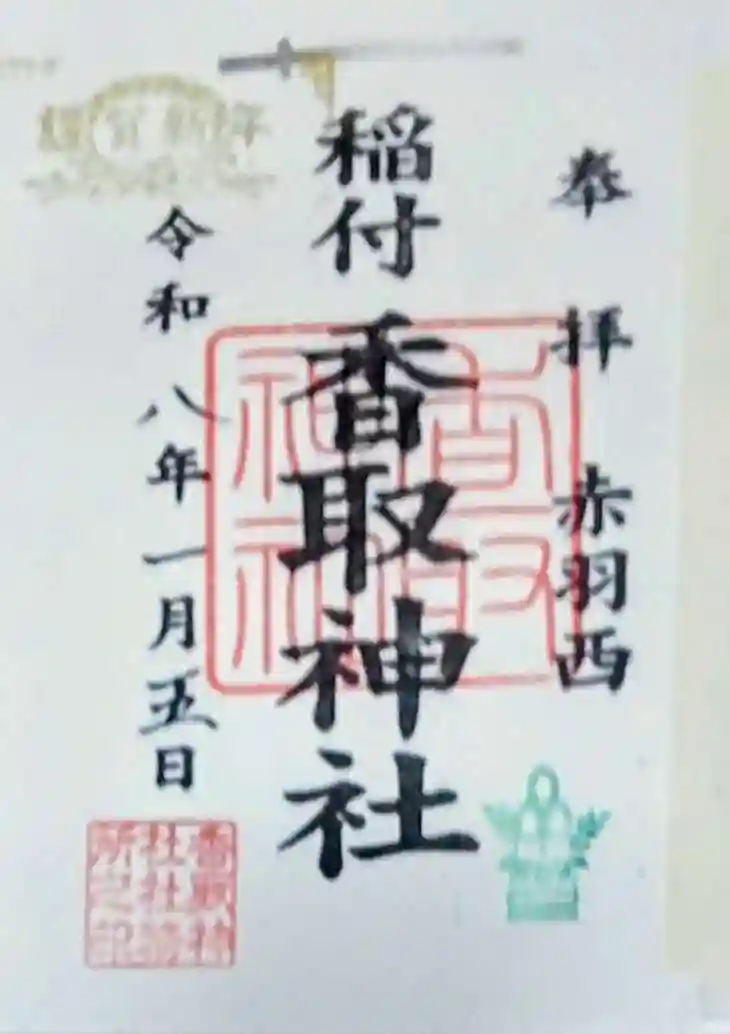 奉拝 赤羽西
稲付
香取神社
令和八年一月五日
謹賀新年